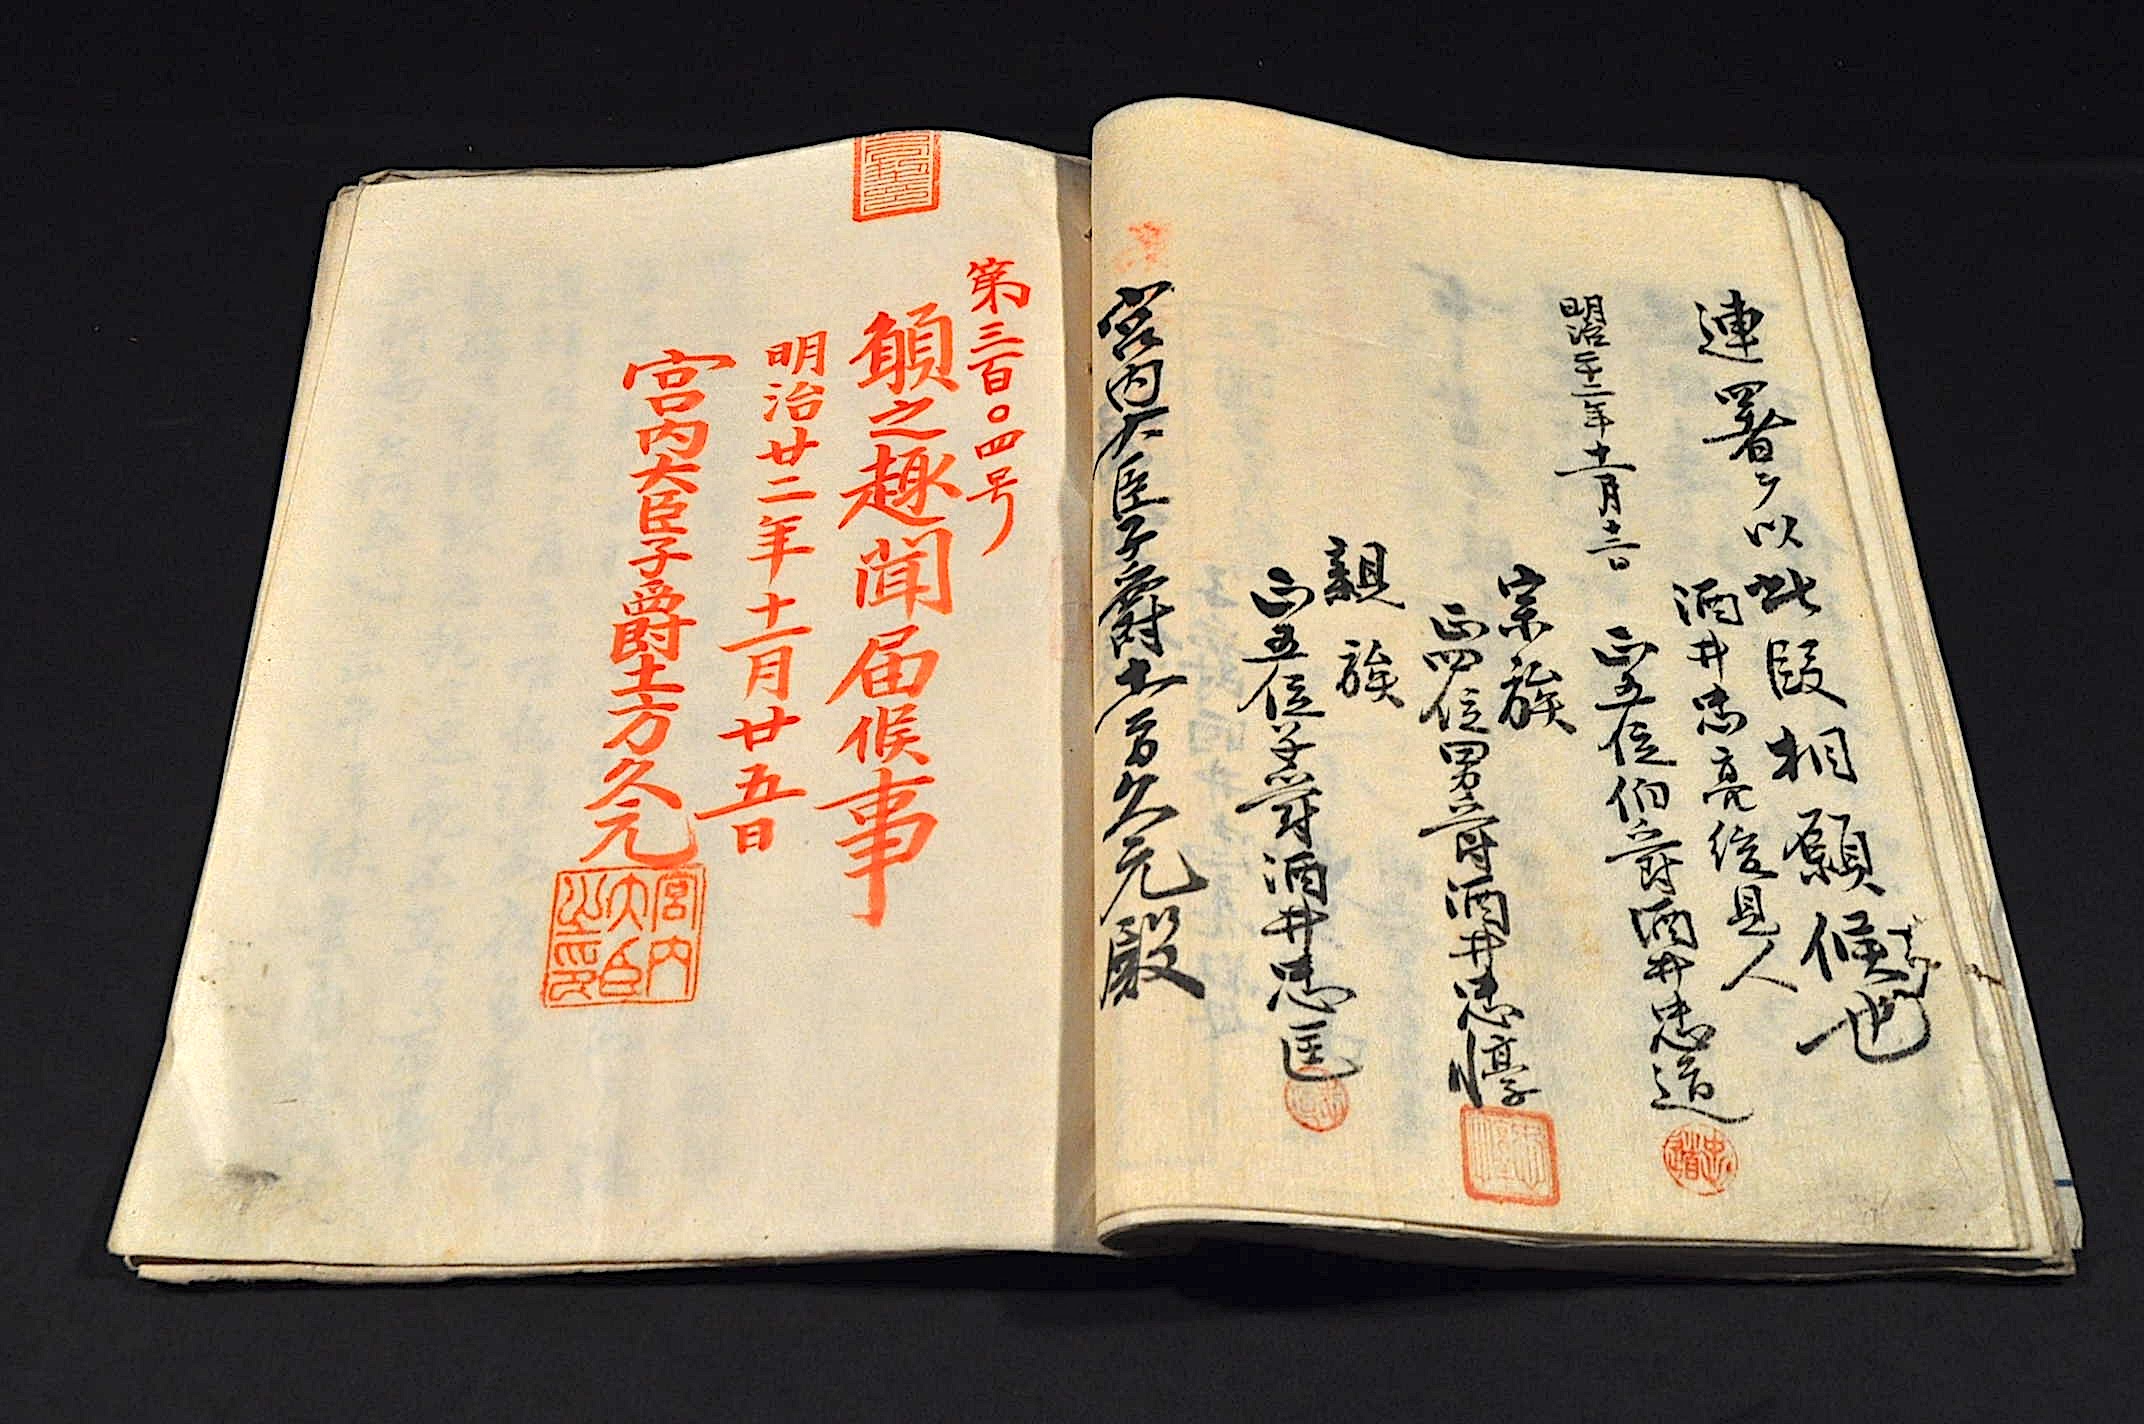 連署ヲ以此段相願候也
酒井忠亮後見人
明治二十二年十一月十二日
正五位伯爵酒井忠道
宗族
正四位男爵酒井忠惇
親族
正五位子爵酒井忠匡
宮内大臣子爵土方久元殿
第三百〇四号
願之趣聞届候事
明治廿二年十一月廿五日
宮内大臣子爵土方久元
宮内大臣之印